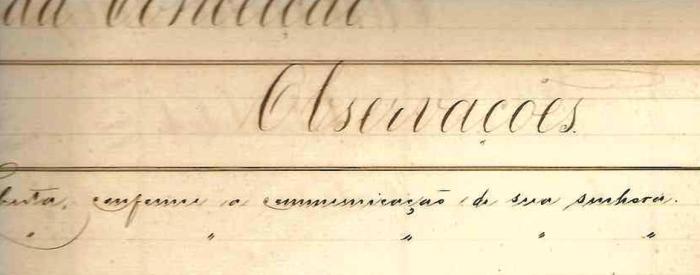 da Conceicao
Observações.
berta, conforme a communicação de sua senhora.
" " " " "